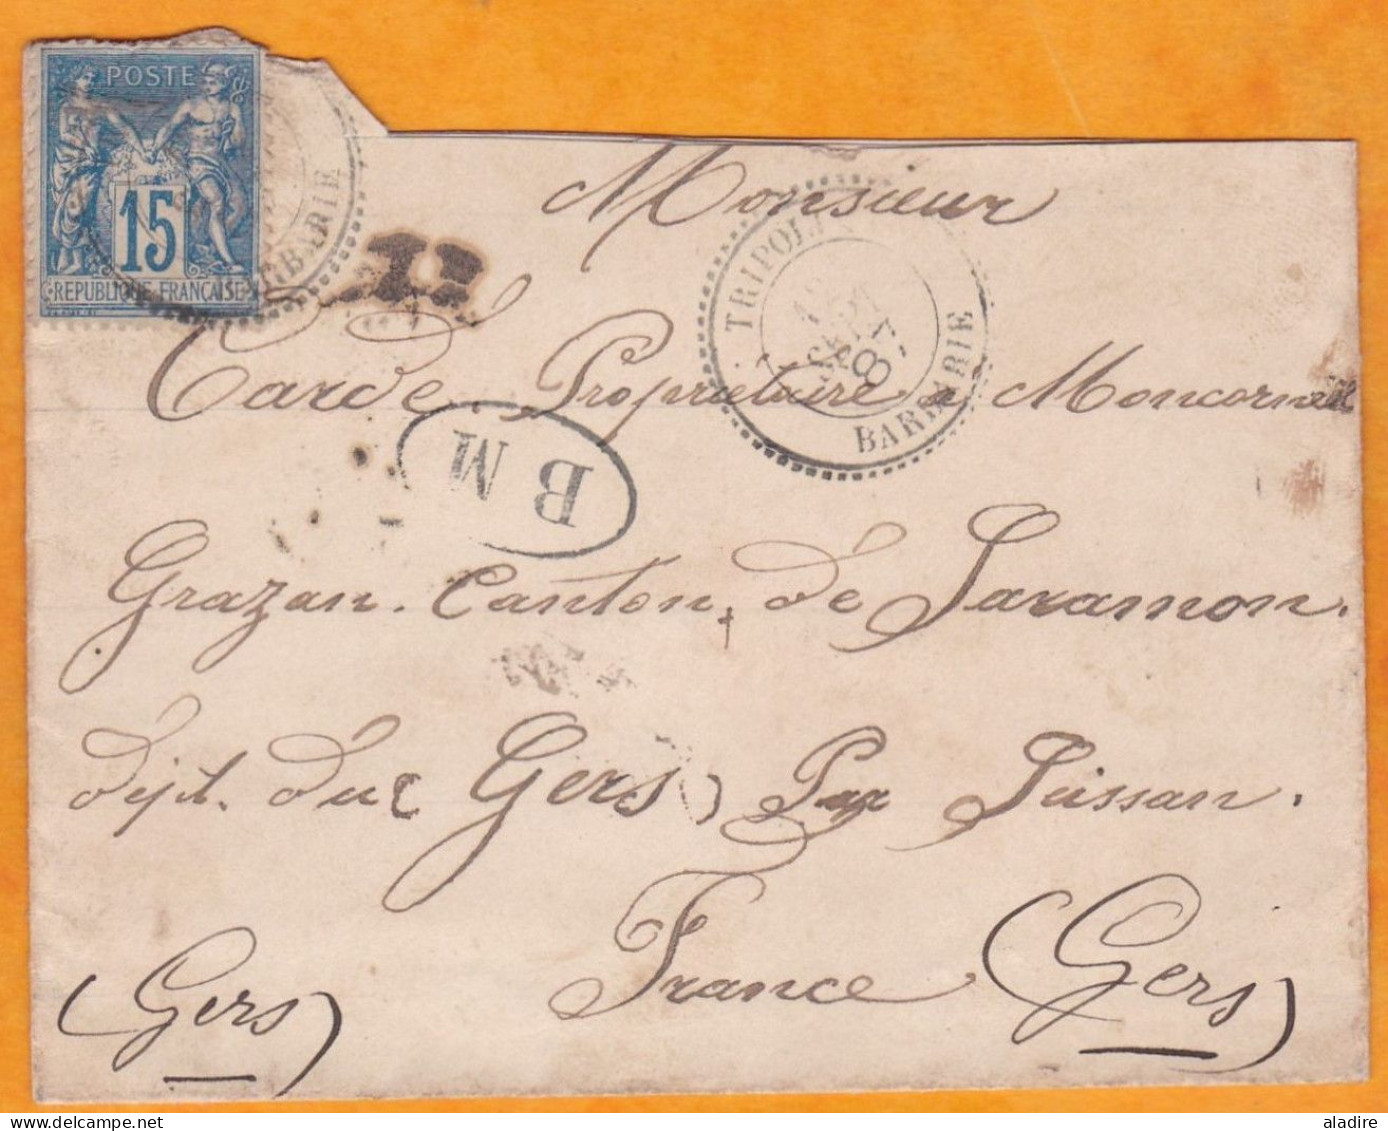 POSTE
15
REPUBLIQUE FRANÇAISE
BARBARIE
Monsieur
TRIPOLI
SEPT
87
BARBARIE
Carde Propriétaire à Moncorneil
B M
Grazan. Canton, de Saramon.
dépt. du Gers) Par Seissan.
France (Gers)
(Gers)
aladire
delcampe.net